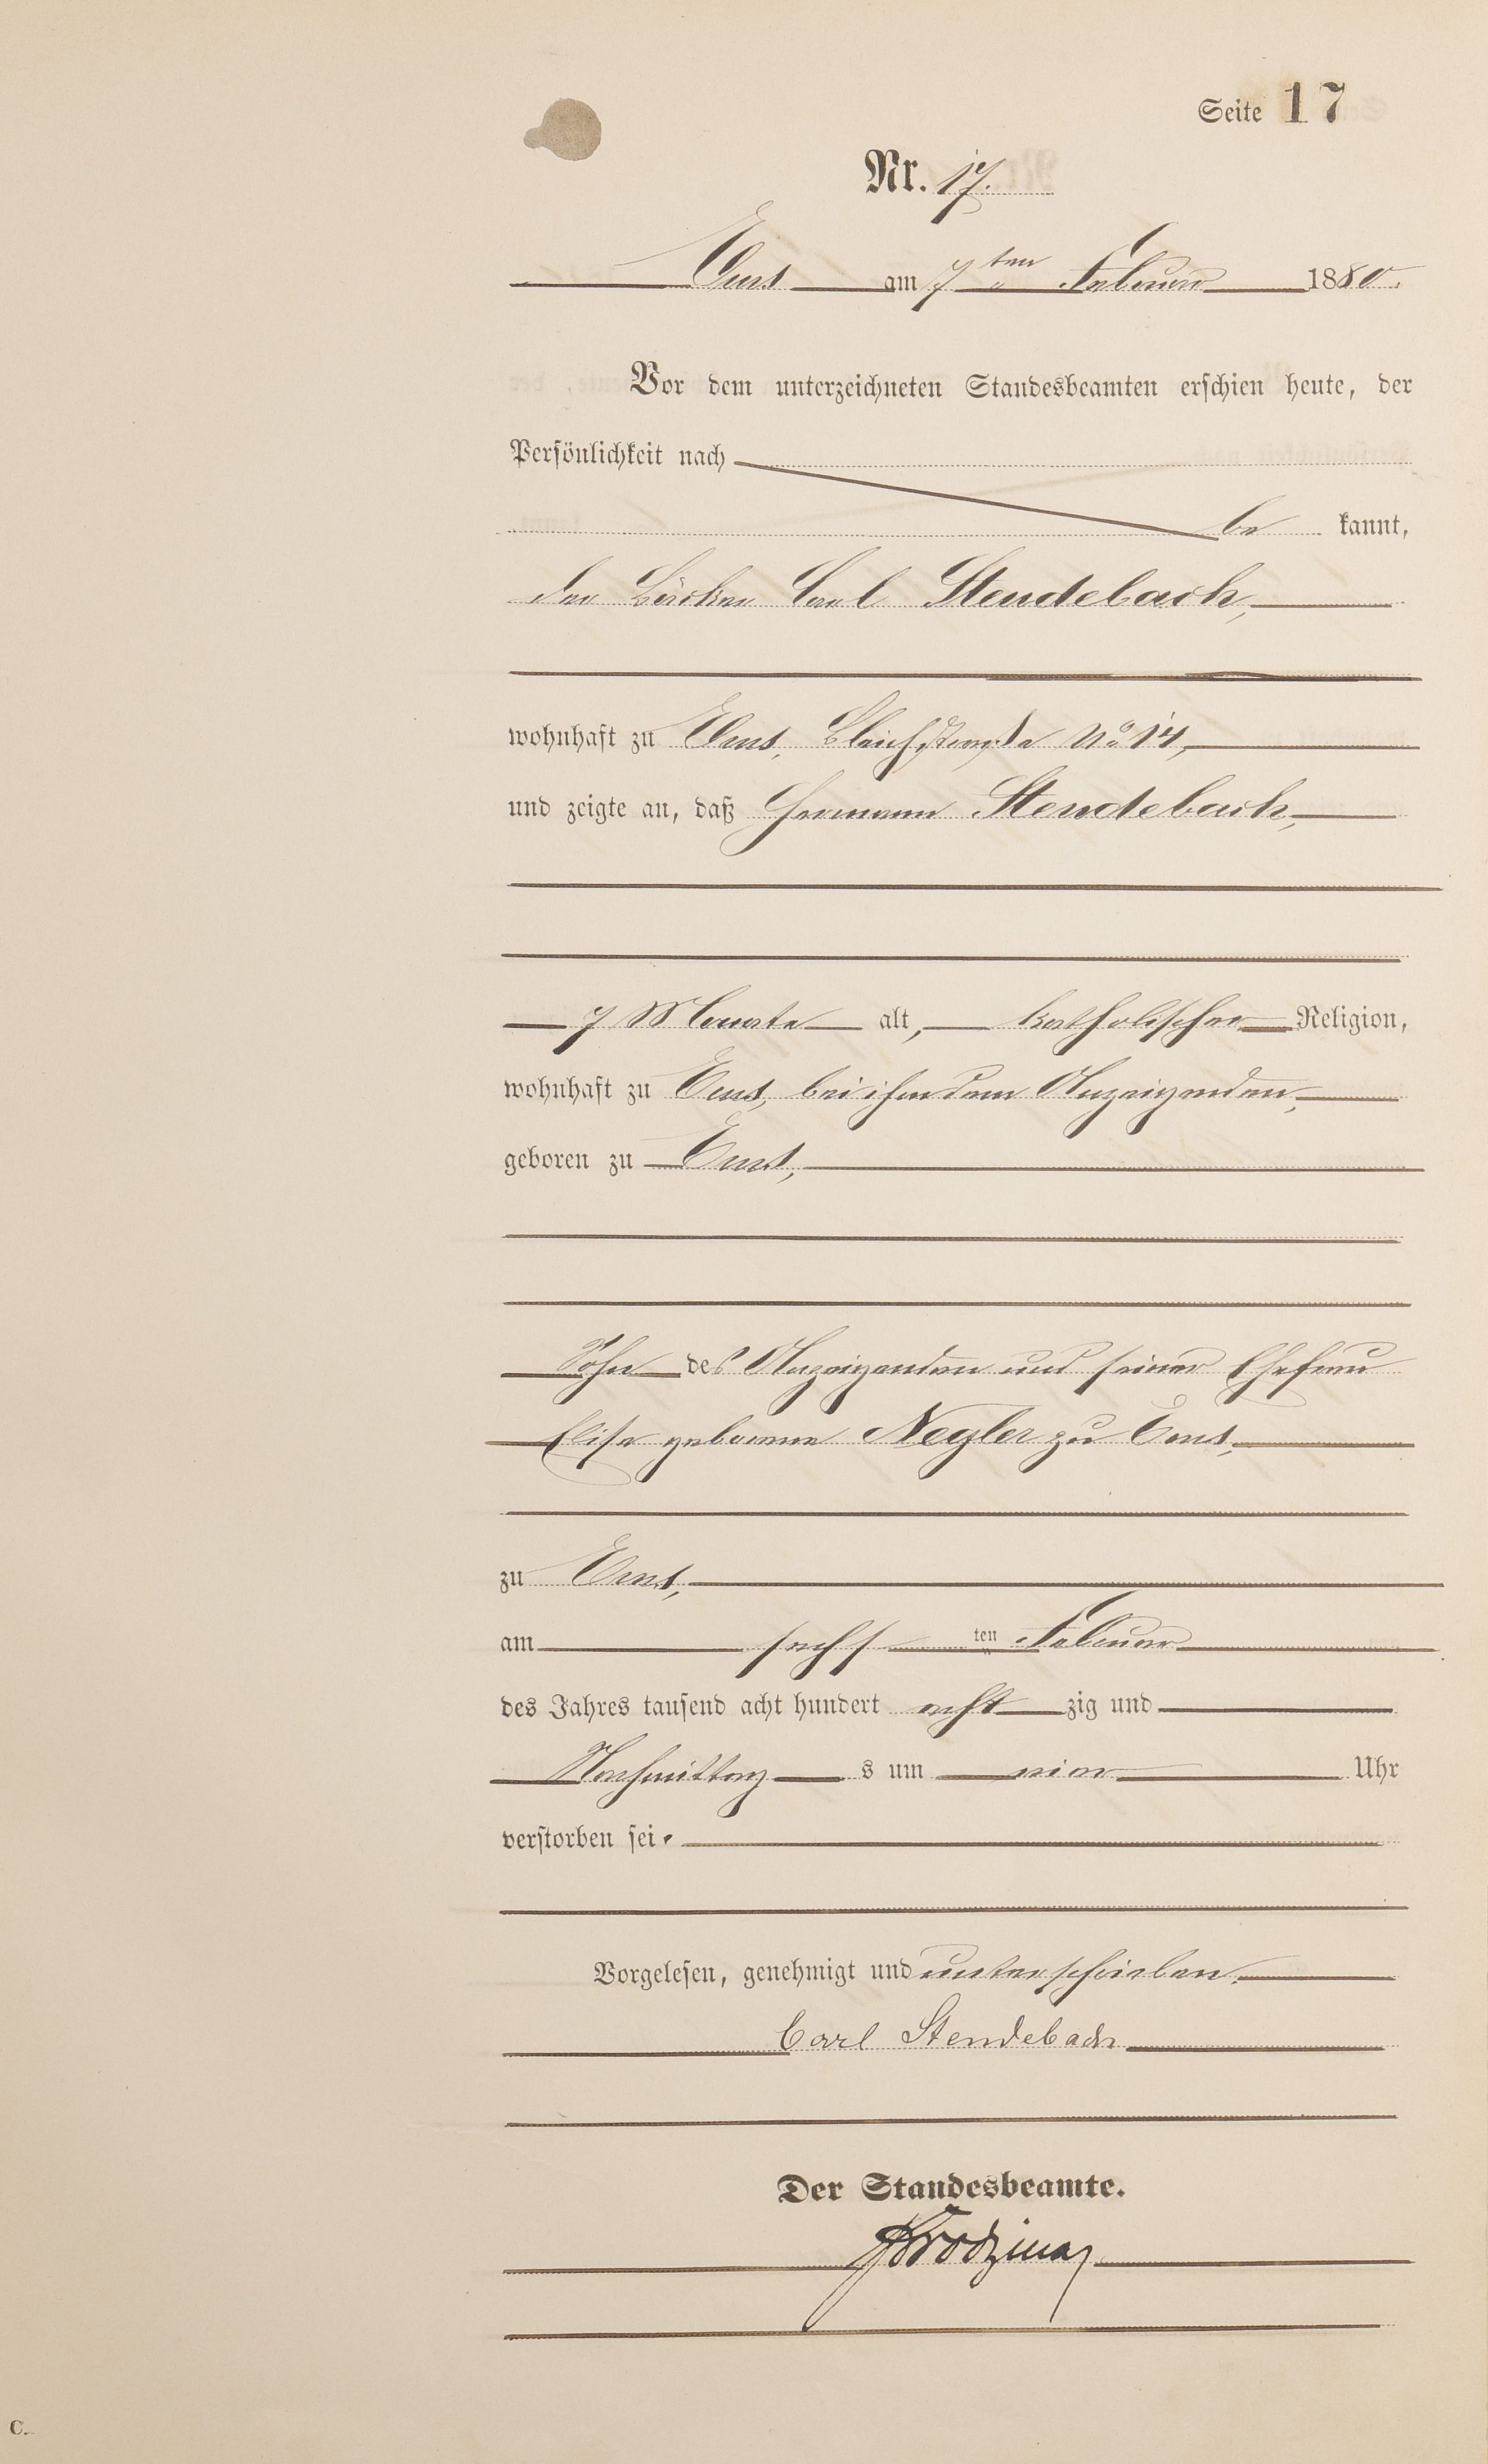 Seite 17
Nr. 17.
Ems am 7ten Februar 1880.
Vor dem unterzeichneten Standesbeamten erschien heute, der
Persönlichkeit nach
be kannt,
der Bäcker Carl Stendebach,
wohnhaft zu Ems, Bleichstraße No 14,
und zeigte an, daß Hermann Stendebach,
7 Monate alt, katholischer Religion,
wohnhaft zu Ems, bei ihm dem Anzeigenden,
geboren zu Ems,
Sohn des Anzeigenden und seiner Ehefrau
Elise geborene Negler zu Ems,
zu Ems,
am sechs ten Februar
des Jahres tausend acht hundert acht zig und
Nachmittag s um vier Uhr
verstorben sei.
Vorgelesen, genehmigt und unterschrieben.
Carl Stendebach
Der Standesbeamte.
C.